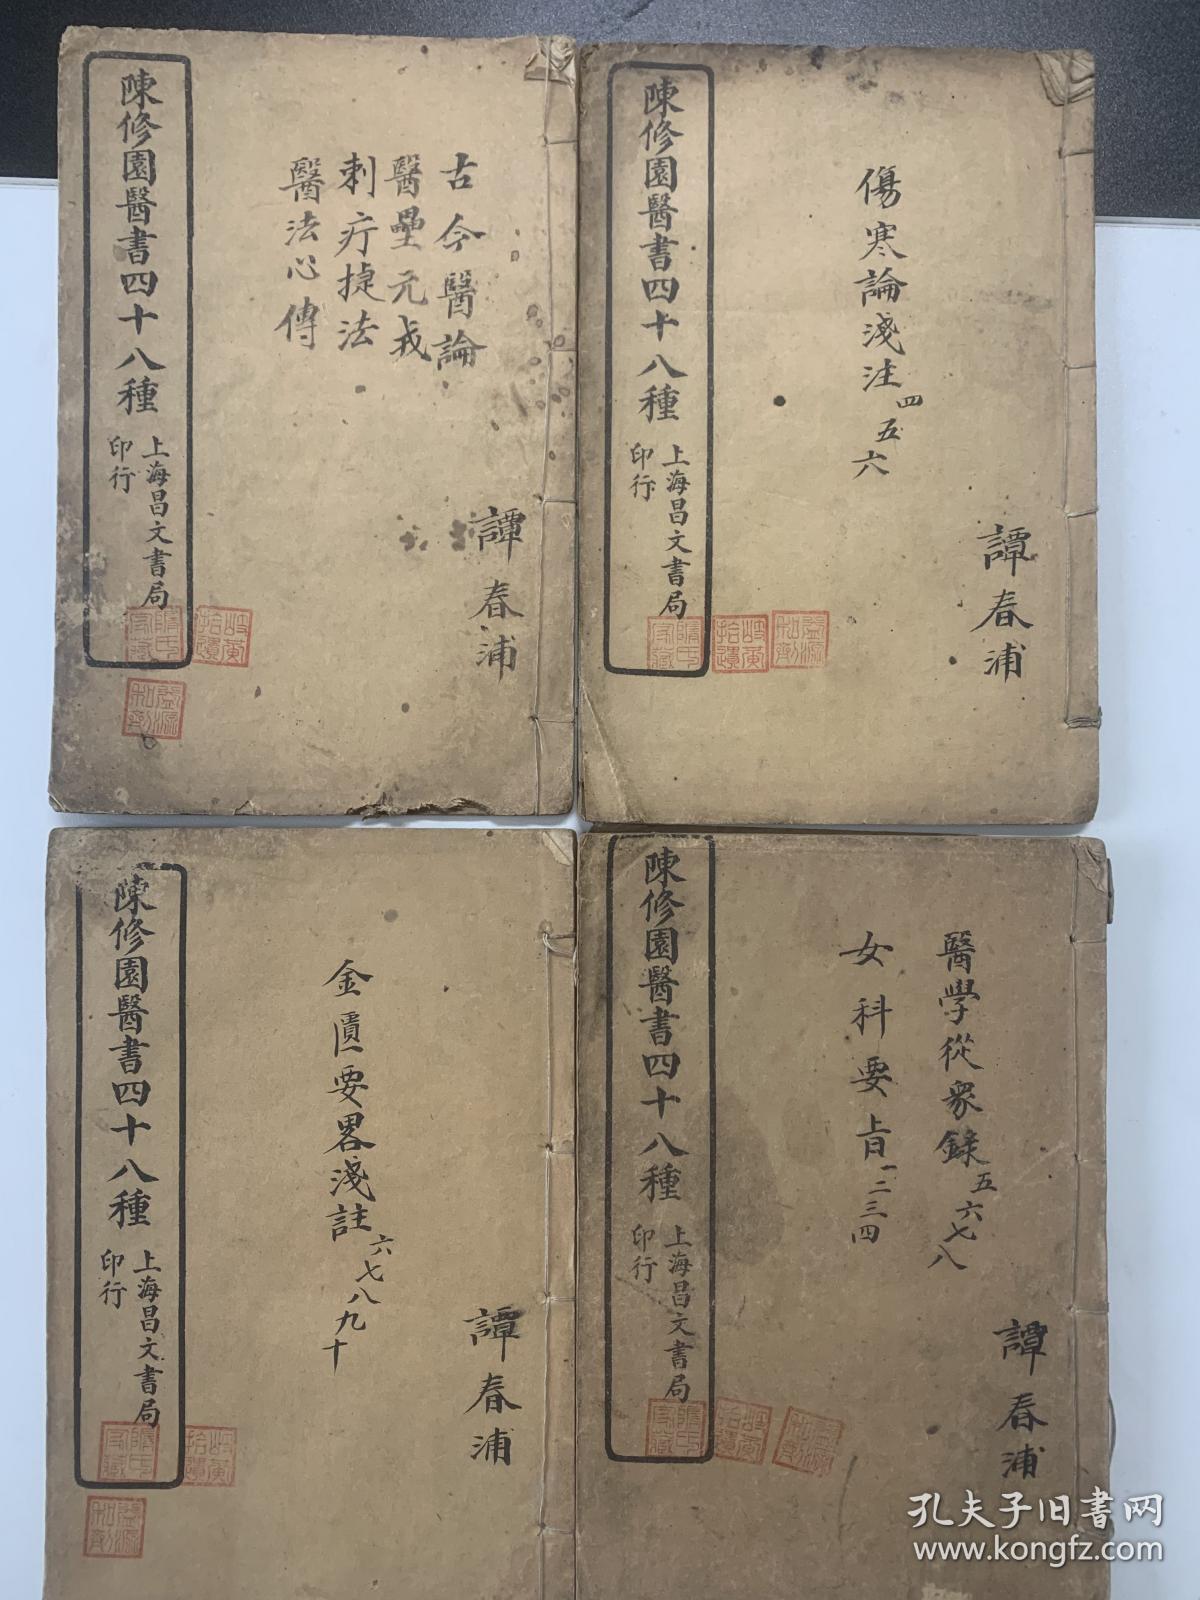 陳修園醫書四十八種
上海昌文書局
印行
古今醫論
醫壘元戎
刺疔捷法
醫法心傳
譚春浦
陳修園醫書四十八種
上海昌文書局
印行
傷寒論淺注四五六
譚春浦
陳修園醫書四十八種
上海昌文書局
印行
金匱要畧淺註六七八九十
譚春浦
陳修園醫書四十八種
上海昌文書局
印行
醫學從衆錄五六七八
女科要旨一二三四
譚春浦
岐黄拾遺
孔夫子旧书网
www.kongfz.com